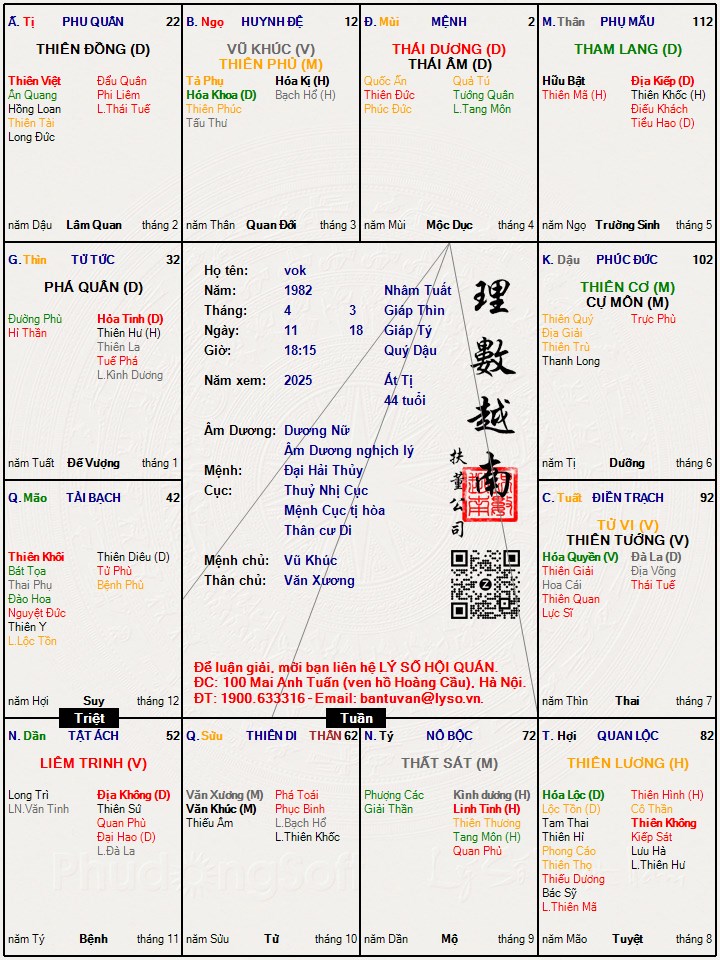 Ấ. Tị PHU QUÂN 22
THIÊN ĐỒNG (D)
Thiên Việt Đẩu Quân
Ân Quang Phi Liêm
Hồng Loan L.Thái Tuế
Thiên Tài
Long Đức
năm Dậu Lâm Quan tháng 2
B. Ngọ HUYNH ĐỆ 12
VŨ KHÚC (V)
THIÊN PHỦ (M)
Tả Phụ Hóa Kị (H)
Hóa Khoa (D) Bạch Hổ (H)
Thiên Phúc
Tấu Thư
năm Thân Quan Đới tháng 3
Đ. Mùi MỆNH 2
THÁI DƯƠNG (D)
THÁI ÂM (D)
Quốc Ấn Quả Tú
Thiên Đức Tướng Quân
Phúc Đức L.Tang Môn
năm Mùi Mộc Dục tháng 4
M. Thân PHỤ MẪU 112
THAM LANG (D)
Hữu Bật Địa Kiếp (D)
Thiên Mã (H) Thiên Khốc (H)
Điếu Khách
Tiểu Hao (D)
năm Ngọ Trường Sinh tháng 5
G. Thìn TỬ TỨC 32
PHÁ QUÂN (D)
Đường Phù Hỏa Tinh (D)
Hỉ Thần Thiên Hư (H)
Thiên La
Tuế Phá
L.Kình Dương
năm Tuất Đế Vượng tháng 1
Họ tên: vok
Năm: 1982 Nhâm Tuất
Tháng: 4 3 Giáp Thìn
Ngày: 11 18 Giáp Tý
Giờ: 18:15 Quý Dậu
Năm xem: 2025 Ất Tị
44 tuổi
Âm Dương: Dương Nữ
Âm Dương nghịch lý
Mệnh: Đại Hải Thủy
Cục: Thuỷ Nhị Cục
Mệnh Cục tị hòa
Thân cư Di
Mệnh chủ: Vũ Khúc
Thân chủ: Văn Xương
理數越南
扶董公司
Để luận giải, mời bạn liên hệ LÝ SỐ HỘI QUÁN.
ĐC: 100 Mai Anh Tuấn (ven hồ Hoàng Cầu), Hà Nội.
ĐT: 1900.633316 - Email: bantuvan@lyso.vn.
K. Dậu PHÚC ĐỨC 102
THIÊN CƠ (M)
CỰ MÔN (M)
Thiên Quý Trực Phù
Địa Giải
Thiên Trù
Thanh Long
năm Tị Dưỡng tháng 6
Q. Mão TÀI BẠCH 42
Thiên Khôi Thiên Diêu (D)
Bát Tọa Tử Phù
Thai Phụ Bệnh Phù
Đào Hoa
Nguyệt Đức
Thiên Y
L.Lộc Tồn
năm Hợi Suy tháng 12
C. Tuất ĐIỀN TRẠCH 92
TỬ VI (V)
THIÊN TƯỚNG (V)
Hóa Quyền (V) Đà La (D)
Thiên Giải Địa Võng
Hoa Cái Thái Tuế
Thiên Quan
Lực Sĩ
năm Thìn Thai tháng 7
Triệt
Tuần
N. Dần TẬT ÁCH 52
LIÊM TRINH (V)
Long Trì Địa Không (D)
LN.Văn Tinh Thiên Sứ
Quan Phù
Đại Hao (D)
L.Đà La
năm Tý Bệnh tháng 11
Q. Sửu THIÊN DI THÂN 62
Văn Xương (M) Phá Toái
Văn Khúc (M) Phục Binh
Thiếu Âm L.Bạch Hổ
L.Thiên Khốc
năm Sửu Tử tháng 10
N. Tý NÔ BỘC 72
THẤT SÁT (M)
Phượng Các Kình dương (H)
Giải Thần Linh Tinh (H)
Thiên Thương
Tang Môn (H)
Quan Phủ
năm Dần Mộ tháng 9
T. Hợi QUAN LỘC 82
THIÊN LƯƠNG (H)
Hóa Lộc (D) Thiên Hình (H)
Lộc Tồn (D) Cô Thần
Tam Thai Thiên Không
Thiên Hỉ Kiếp Sát
Phong Cáo Lưu Hà
Thiên Thọ L.Thiên Hư
Thiếu Dương
Bác Sỹ
L.Thiên Mã
năm Mão Tuyệt tháng 8